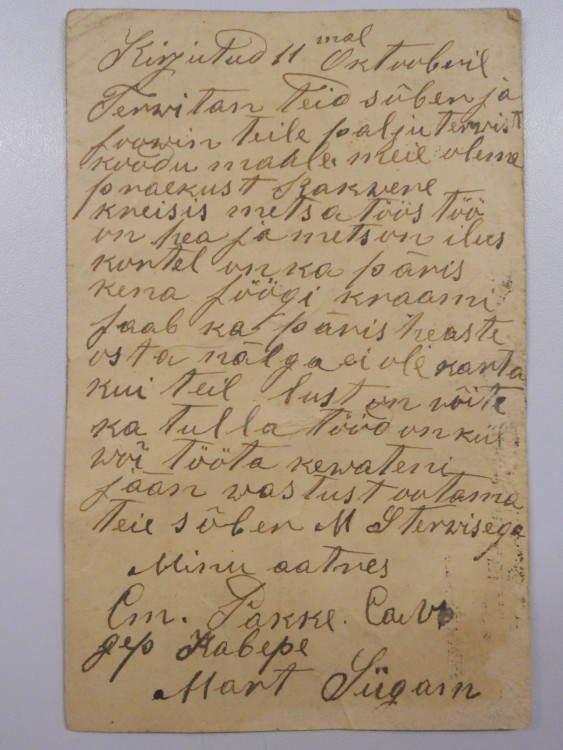 Kirjutud 11 mal Oktoobril
Terwitan Teid sõber ja
soowin teile palju terwist
koodu maale meie oleme
praekust Rakwere
kreisis metsa töös töö
on hea ja mets on ilus
kortel on ka päris
kena söögi kraami
saab ka päris heaste
osta nälga ei ole karta
kui teil lust on võite
ka tulla tööd on kül
wõi tööta kewateni
jään wastust ootama
teie sõber M S terwisega
Minu aatres
Ст. Ракке.
дер Кавере
Mart Sügam